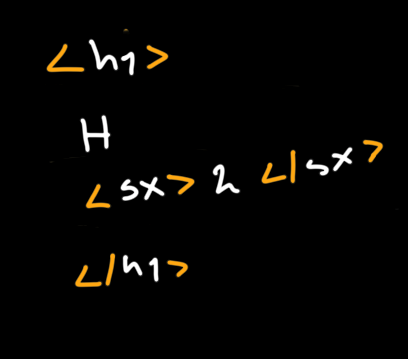 <h1>
H
<sx> 2 </sx>
</h1>